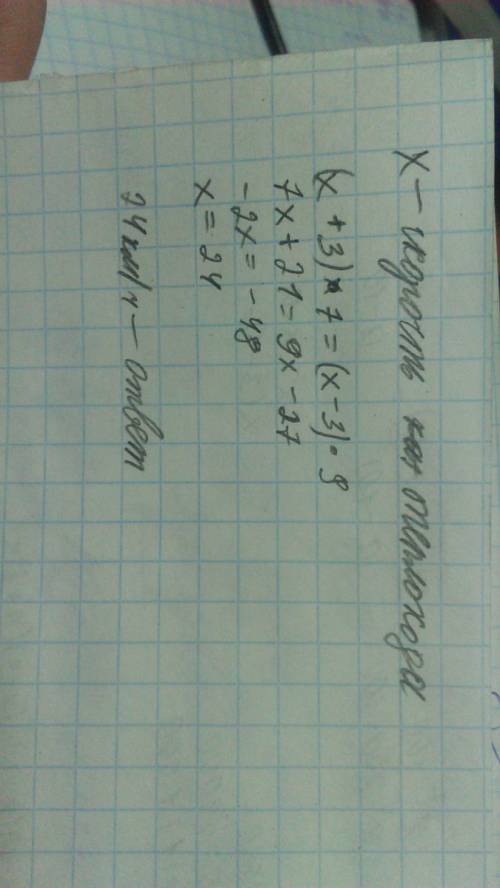 x – скорость теплохода
(x + 3) • 7 = (x – 3) • 9
7x + 21 = 9x – 27
– 2x = – 48
x = 24
24 км/ч – ответ